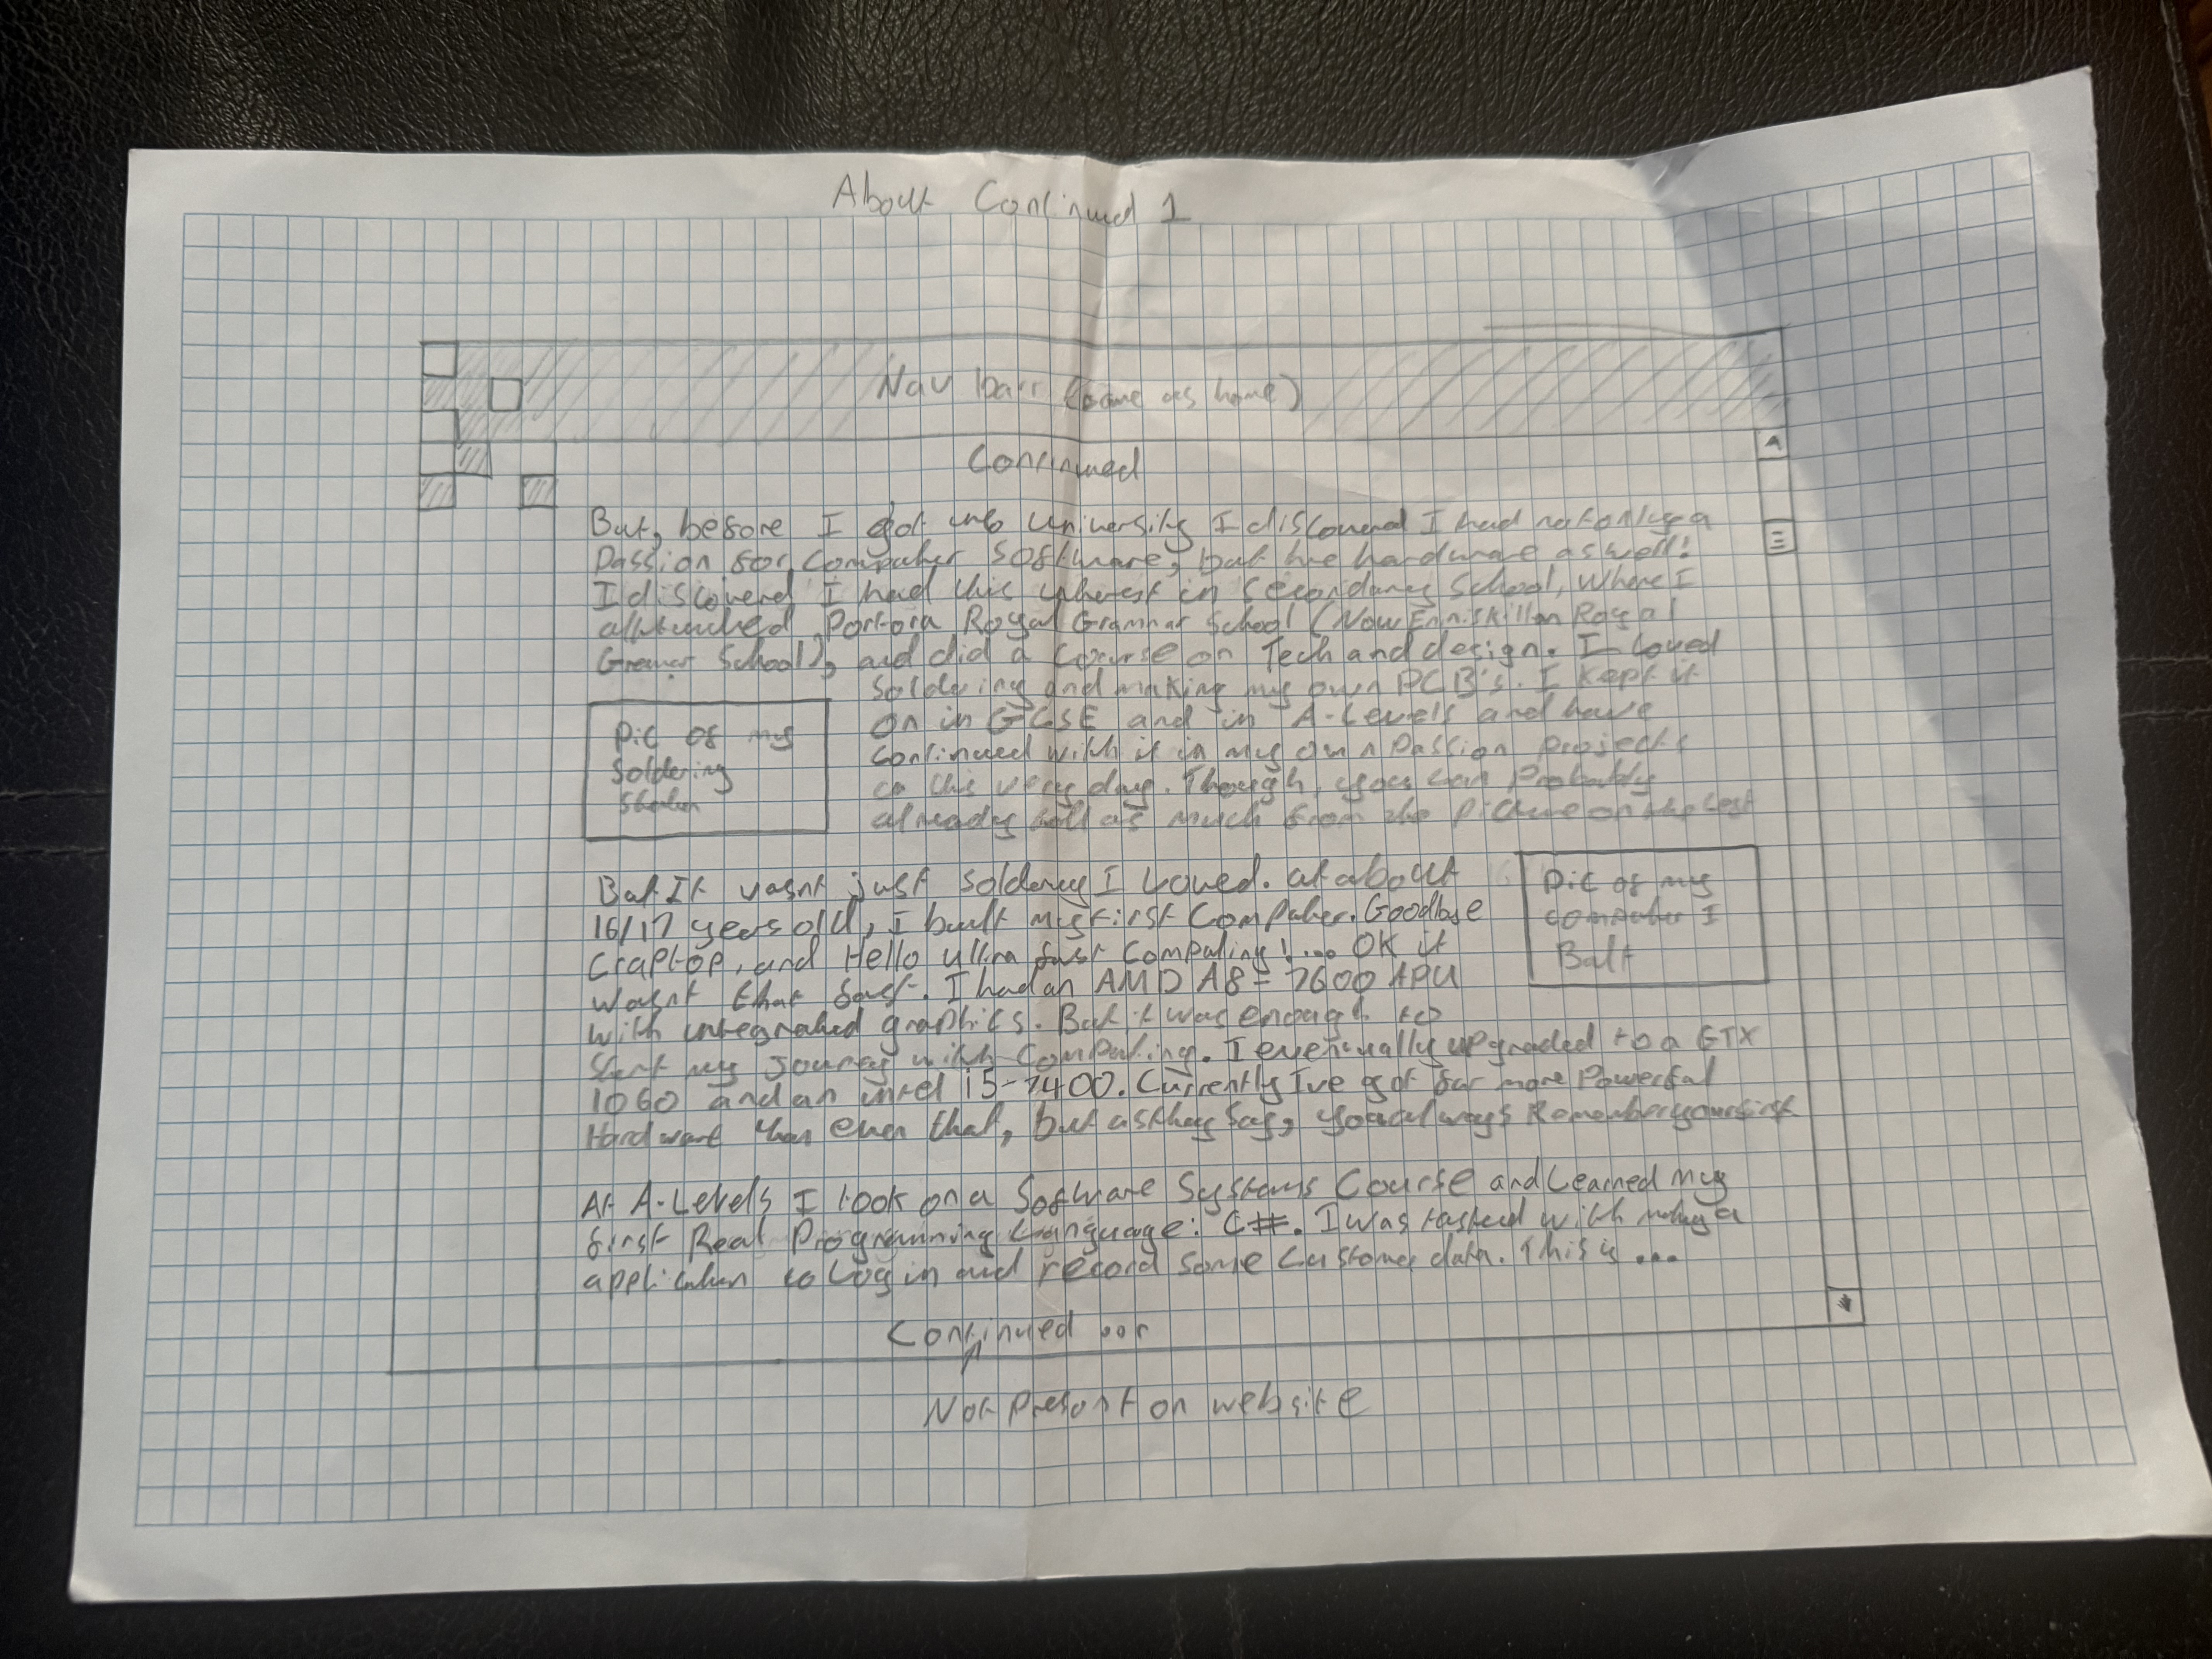 About Continued 1
Nav barr (same as home)
Continued
But, before I got into University I discovered I had not only a
Passion for Computer Software, but the hardware as well!
I discoverd I had this interest in Secondary School, Where I
Portora Royal Grammar School (Now Enniskillen Royal
School), and did a course on Tech and design. I Loved
Soldering and making my own PCB's. I kept it
on in GCSE and in A-Levels and have
continued with it in my own Passion projects
to this very day. Though, you can Probably
already tell as much from the picture on the left
Pic of my
Soldering
Station
But It wasnt just soldering I Loved. at about
16/17 years old, I built my first Computer. Goodbye
Craptop, and Hello ultra fast Computing!... OK it
wasnt that fast. I had an AMD A8-7600 APU
with integrated graphics. But it was enough to
Start my with Computing. I eventually upgraded to a GTX
1060 and an intel i5-7400. Currently Ive got far more Powerful
Hardware than even that, but as they say, you always Remember your first
Pic of my
computer I
Built
At A-Levels I took on a Software Systems Course and Learned my
first Real Programming Language: C#. I was tasked with making a
application to Log in and record some Customer data. This is ...
Continued ...
Not Present on website